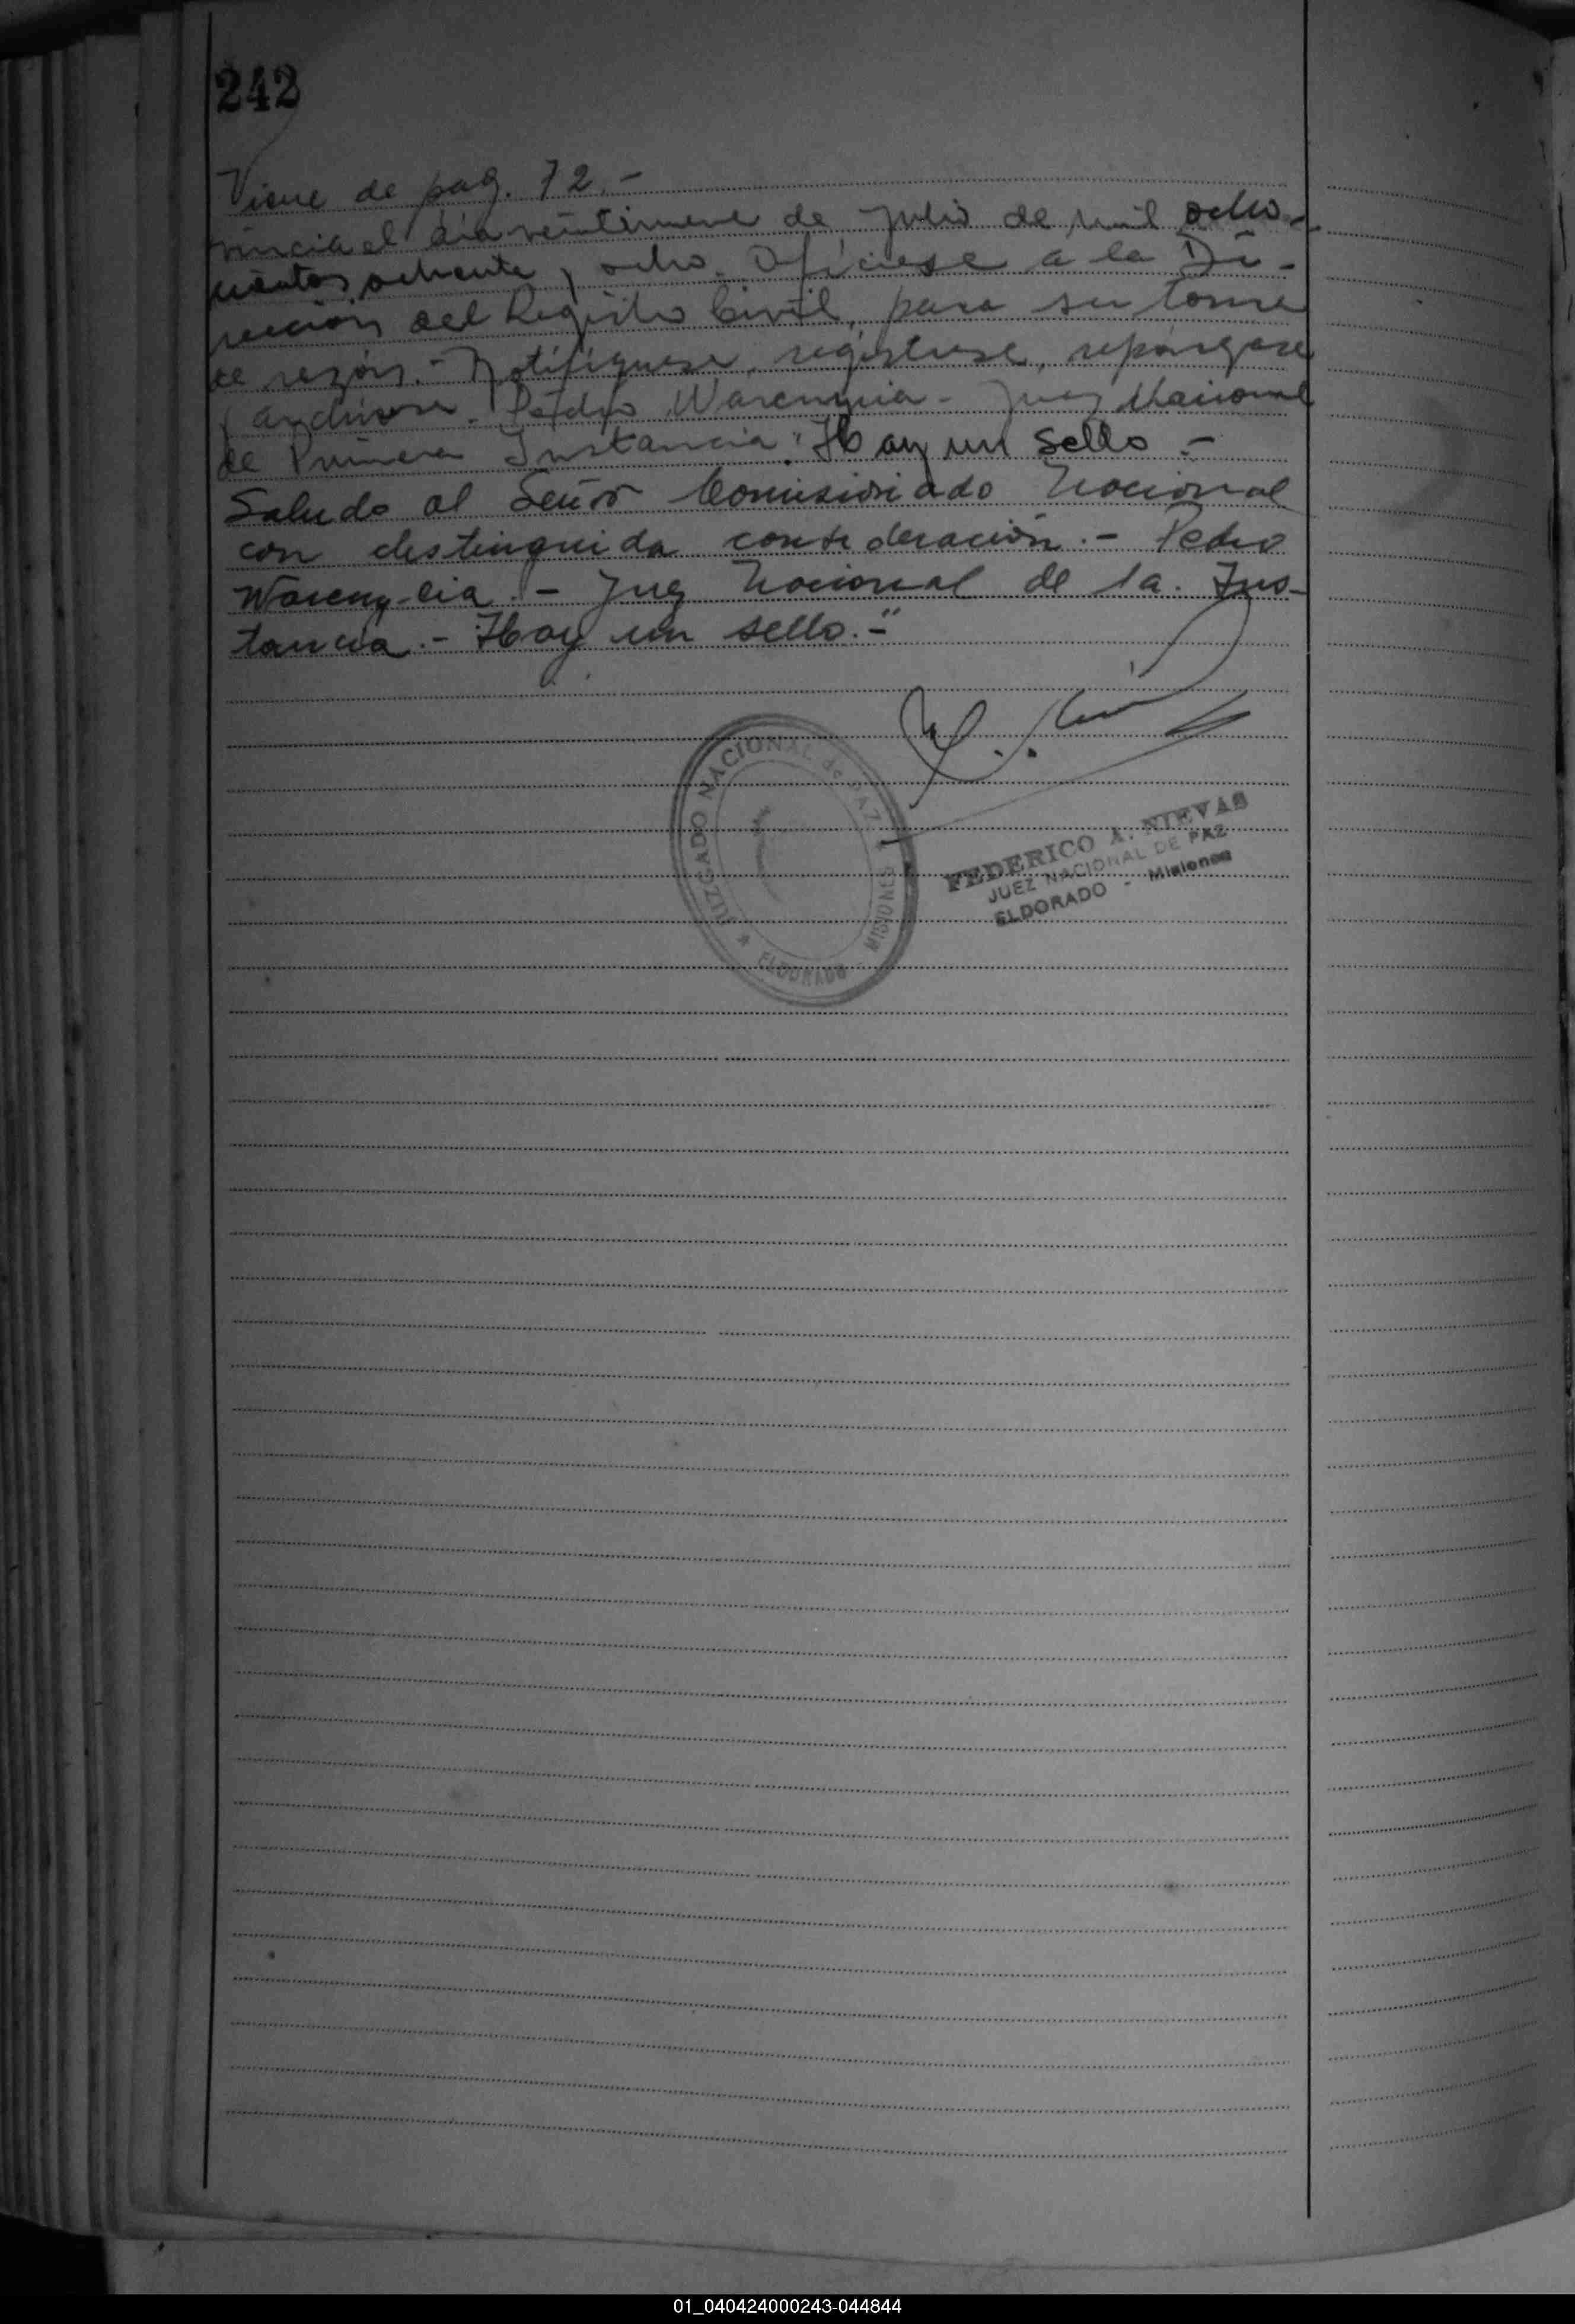 242
Viene de pag. 72.-
vincia el dia veintinueve de julio de mil ocho-
cientos ochenta y ocho. Ofíciese a la Di-
rección del Registro Civil, para su toma
de razón.- Notifíquese, regístrese, repóngase
y archívese. Pedro Warenycia - Juez Nacional
de Primera Instancia. Hay un sello.-
Saludo al Señor Comisionado Nacional
con distinguida consideración.- Pedro
Wareny-cia.- Juez Nacional de 1a. Ins-
tancia.- Hay un sello.-"
JUZGADO NACIONAL de PAZ
ELDORADO - MISIONES
FEDERICO A. NIEVAS
JUEZ NACIONAL DE PAZ
ELDORADO - Misiones
01_040424000243-044844